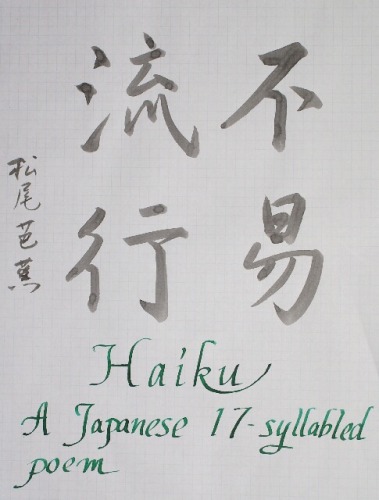 不易
流行
松尾芭蕉
Haiku
A Japanese 17-syllabled
poem